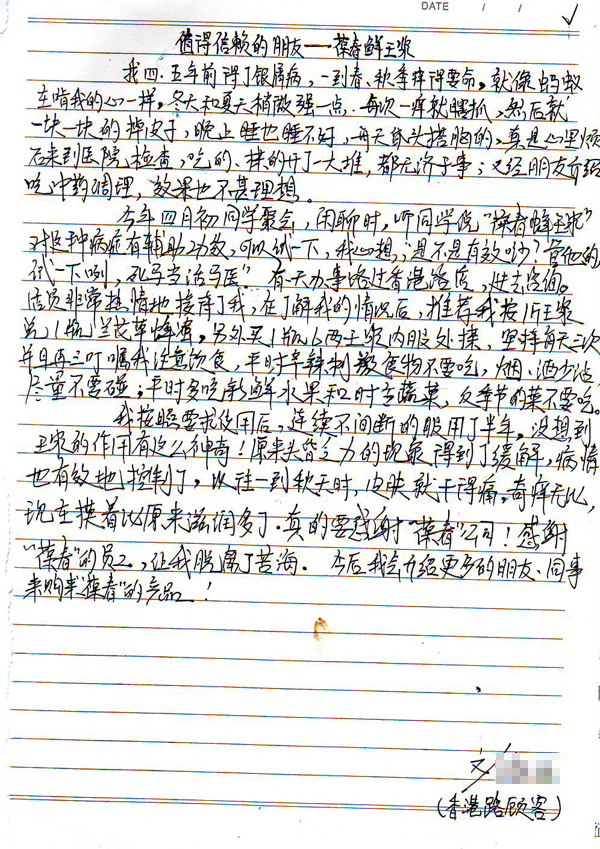 DATE / /
值得信赖的朋友——葆春鲜王浆
我四、五年前得了银屑病,一到春、秋季痒得要命,就像蚂蚁
在啃我的心一样,冬天和夏天稍微强一点,每次一痒就瞎抓,然后就
一块一块的掉皮子,晚上睡也睡不好,每天昏头搭脑的,真是心里烦
后来到医院检查,吃的、抹的开了一大堆,都无济于事;又经朋友介绍
吃中药调理,效果也不甚理想。
今年四月初同学聚会,闲聊时,听同学说"葆春蜂王浆"
对这种病症有辅助功效,可以试一下,我心想,是不是有效吵?管他的
试一下咧,死马当活马医"。有一天办事路过香港路店,进去咨询。
店员非常热情地接待了我,在了解我的情况后,推荐我按1斤王浆
兑1瓶兰花草蜂蜜,另外买1瓶心两王浆内服外抹,坚持每天三次
并且再三叮嘱我注意饮食,平时辛辣刺激食物不要吃,烟、酒少沾
尽量不要碰;平时多吃新鲜水果和时令蔬菜,反季节的菜不要吃。
我按照要求使用后,连续不间断的服用了半年,没想到
王浆的作用有这么神奇!原来头昏乏力的现象得到了缓解,病情
也有效地控制了,以往一到秋天时,皮肤就干得痛,奇痒无比,
现在摸着比原来滋润多了。真的要感谢"葆春"公司!感谢
"葆春"的员工,让我脱离了苦海。今后我会介绍更多的朋友、同事
来购买"葆春"的产品!
文
(香港路顾客)